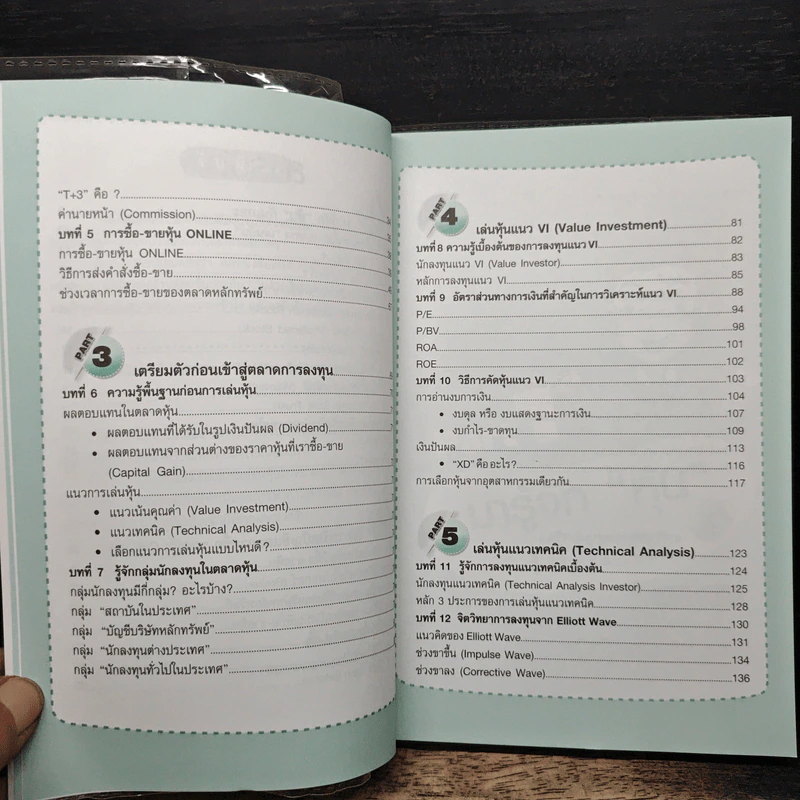 "T+3" คือ ?
ค่านายหน้า (Commission)
บทที่ 5 การซื้อ-ขายหุ้น ONLINE
การซื้อ-ขายหุ้น ONLINE
วิธีการส่งคำสั่งซื้อ-ขาย
ช่วงเวลาการซื้อ-ขายของตลาดหลักทรัพย์
PART 3 เตรียมตัวก่อนเข้าสู่ตลาดการลงทุน
บทที่ 6 ความรู้พื้นฐานก่อนการเล่นหุ้น
ผลตอบแทนในตลาดหุ้น
• ผลตอบแทนที่ได้รับในรูปเงินปันผล (Dividend)
• ผลตอบแทนจากส่วนต่างของราคาหุ้นที่เราซื้อ-ขาย
(Capital Gain)
แนวการเล่นหุ้น
• แนวเน้นคุณค่า (Value Investment)
• แนวเทคนิค (Technical Analysis)
• เลือกแนวการเล่นหุ้นแบบไหนดี?
บทที่ 7 รู้จักกลุ่มนักลงทุนในตลาดหุ้น
กลุ่มนักลงทุนมีกี่กลุ่ม? อะไรบ้าง?
กลุ่ม "สถาบันในประเทศ"
กลุ่ม "บัญชีบริษัทหลักทรัพย์"
กลุ่ม "นักลงทุนต่างประเทศ"
กลุ่ม "นักลงทุนทั่วไปในประเทศ"
PART 4 เล่นหุ้นแนว VI (Value Investment) 81
บทที่ 8 ความรู้เบื้องต้นของการลงทุนแนว VI 82
นักลงทุนแนว VI (Value Investor) 83
หลักการลงทุนแนว VI 85
บทที่ 9 อัตราส่วนทางการเงินที่สำคัญในการวิเคราะห์แนว VI 88
P/E 94
P/BV 98
ROA 101
ROE 102
บทที่ 10 วิธีการคัดหุ้นแนว VI 103
การอ่านงบการเงิน 104
• งบดุล หรือ งบแสดงฐานะการเงิน 107
• งบกำไร-ขาดทุน 109
เงินปันผล 113
• "XD" คือ อะไร? 116
การเลือกหุ้นจากอุตสาหกรรมเดียวกัน 117
PART 5 เล่นหุ้นแนวเทคนิค (Technical Analysis) 123
บทที่ 11 รู้จักการลงทุนแนวเทคนิคเบื้องต้น 124
นักลงทุนแนวเทคนิค (Technical Analysis Investor) 125
หลัก 3 ประการของการเล่นหุ้นแนวเทคนิค 128
บทที่ 12 จิตวิทยาการลงทุนจาก Elliott Wave 130
แนวคิดของ Elliott Wave 131
ช่วงขาขึ้น (Impulse Wave) 134
ช่วงขาลง (Corrective Wave) 136